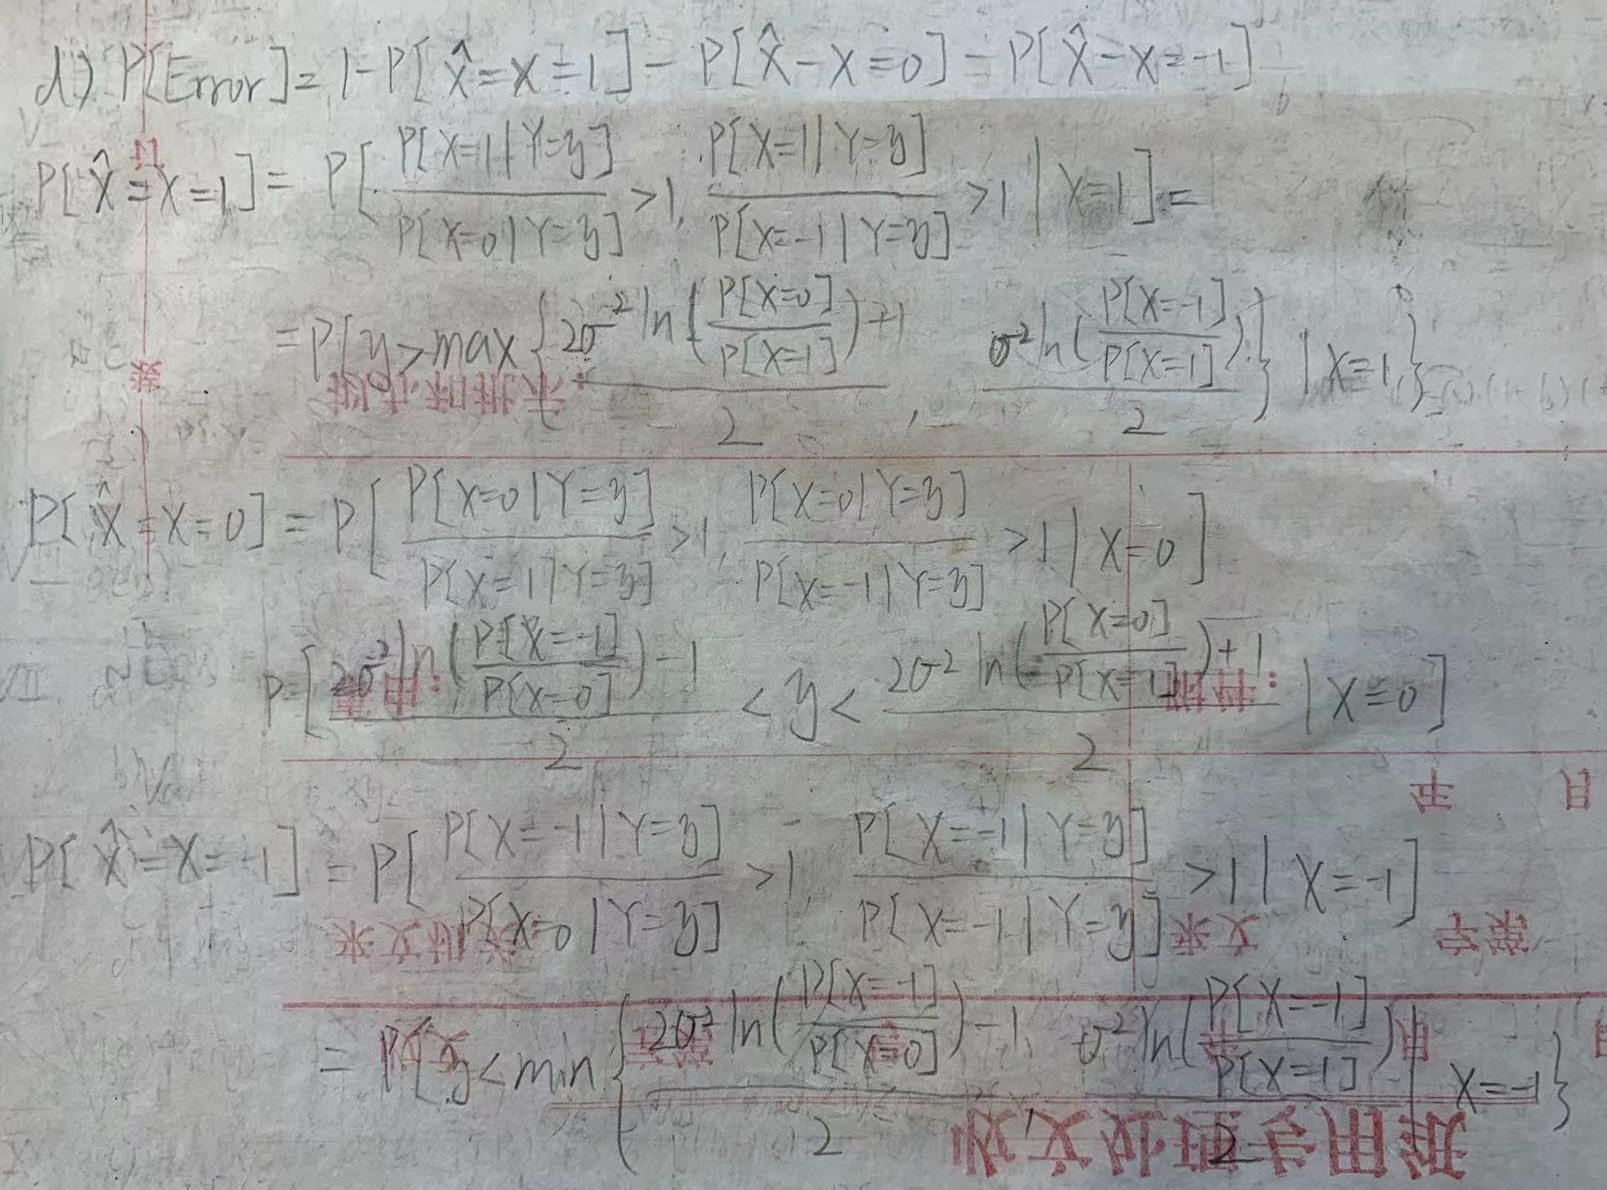 d) P[Error] = 1 - P[X̂ = X = 1] - P[X̂ - X = 0] - P[X̂ - X = -1]
P[X̂ = X = 1] = P[ P[X=1|Y=y] / P[X=0|Y=y] > 1, P[X=1|Y=y] / P[X=-1|Y=y] > 1 | X=1 ] =
= P{ y > max{ (2σ² ln(P[X=0] / P[X=1]) + 1) / 2 , σ² ln(P[X=-1] / P[X=1]) / 2 } | X=1 }
P[X̂ = X = 0] = P[ P[X=0|Y=y] / P[X=1|Y=y] > 1, P[X=0|Y=y] / P[X=-1|Y=y] > 1 | X=0 ]
P[ (2σ² ln(P[X=-1] / P[X=0]) - 1) / 2 < y < (2σ² ln(P[X=0] / P[X=1]) + 1) / 2 | X=0 ]
年 月
P[X̂ = X = -1] = P[ P[X=-1|Y=y] / P[X=0|Y=y] > 1, P[X=-1|Y=y] / P[X=-1|Y=y] > 1 | X=-1 ]
来文 字第
= P{ y < min{ (2σ² ln(P[X=-1] / P[X=0]) - 1) / 2 , σ² ln(P[X=-1] / P[X=1]) / 2 | X=-1 }
收文处理专用纸